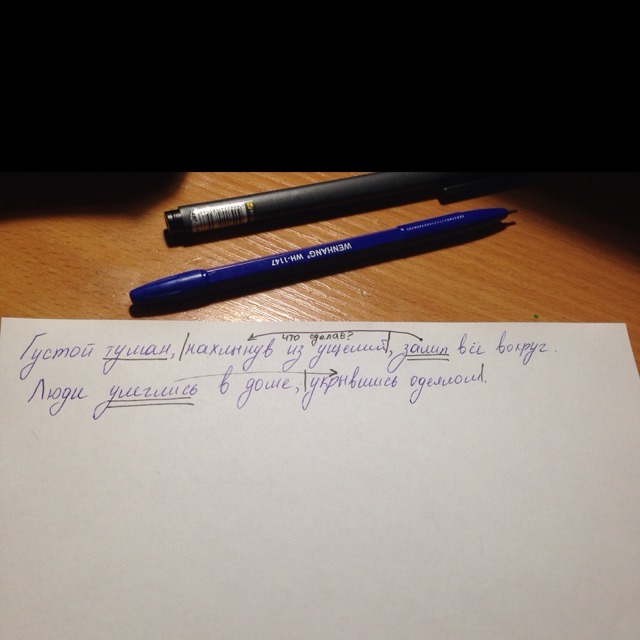 WENHANG® WH-1147
что сделав?
Густой туман, нахлынув из ущелий, залил всё вокруг.
Люди улеглись в доме, укрывшись одеялом.